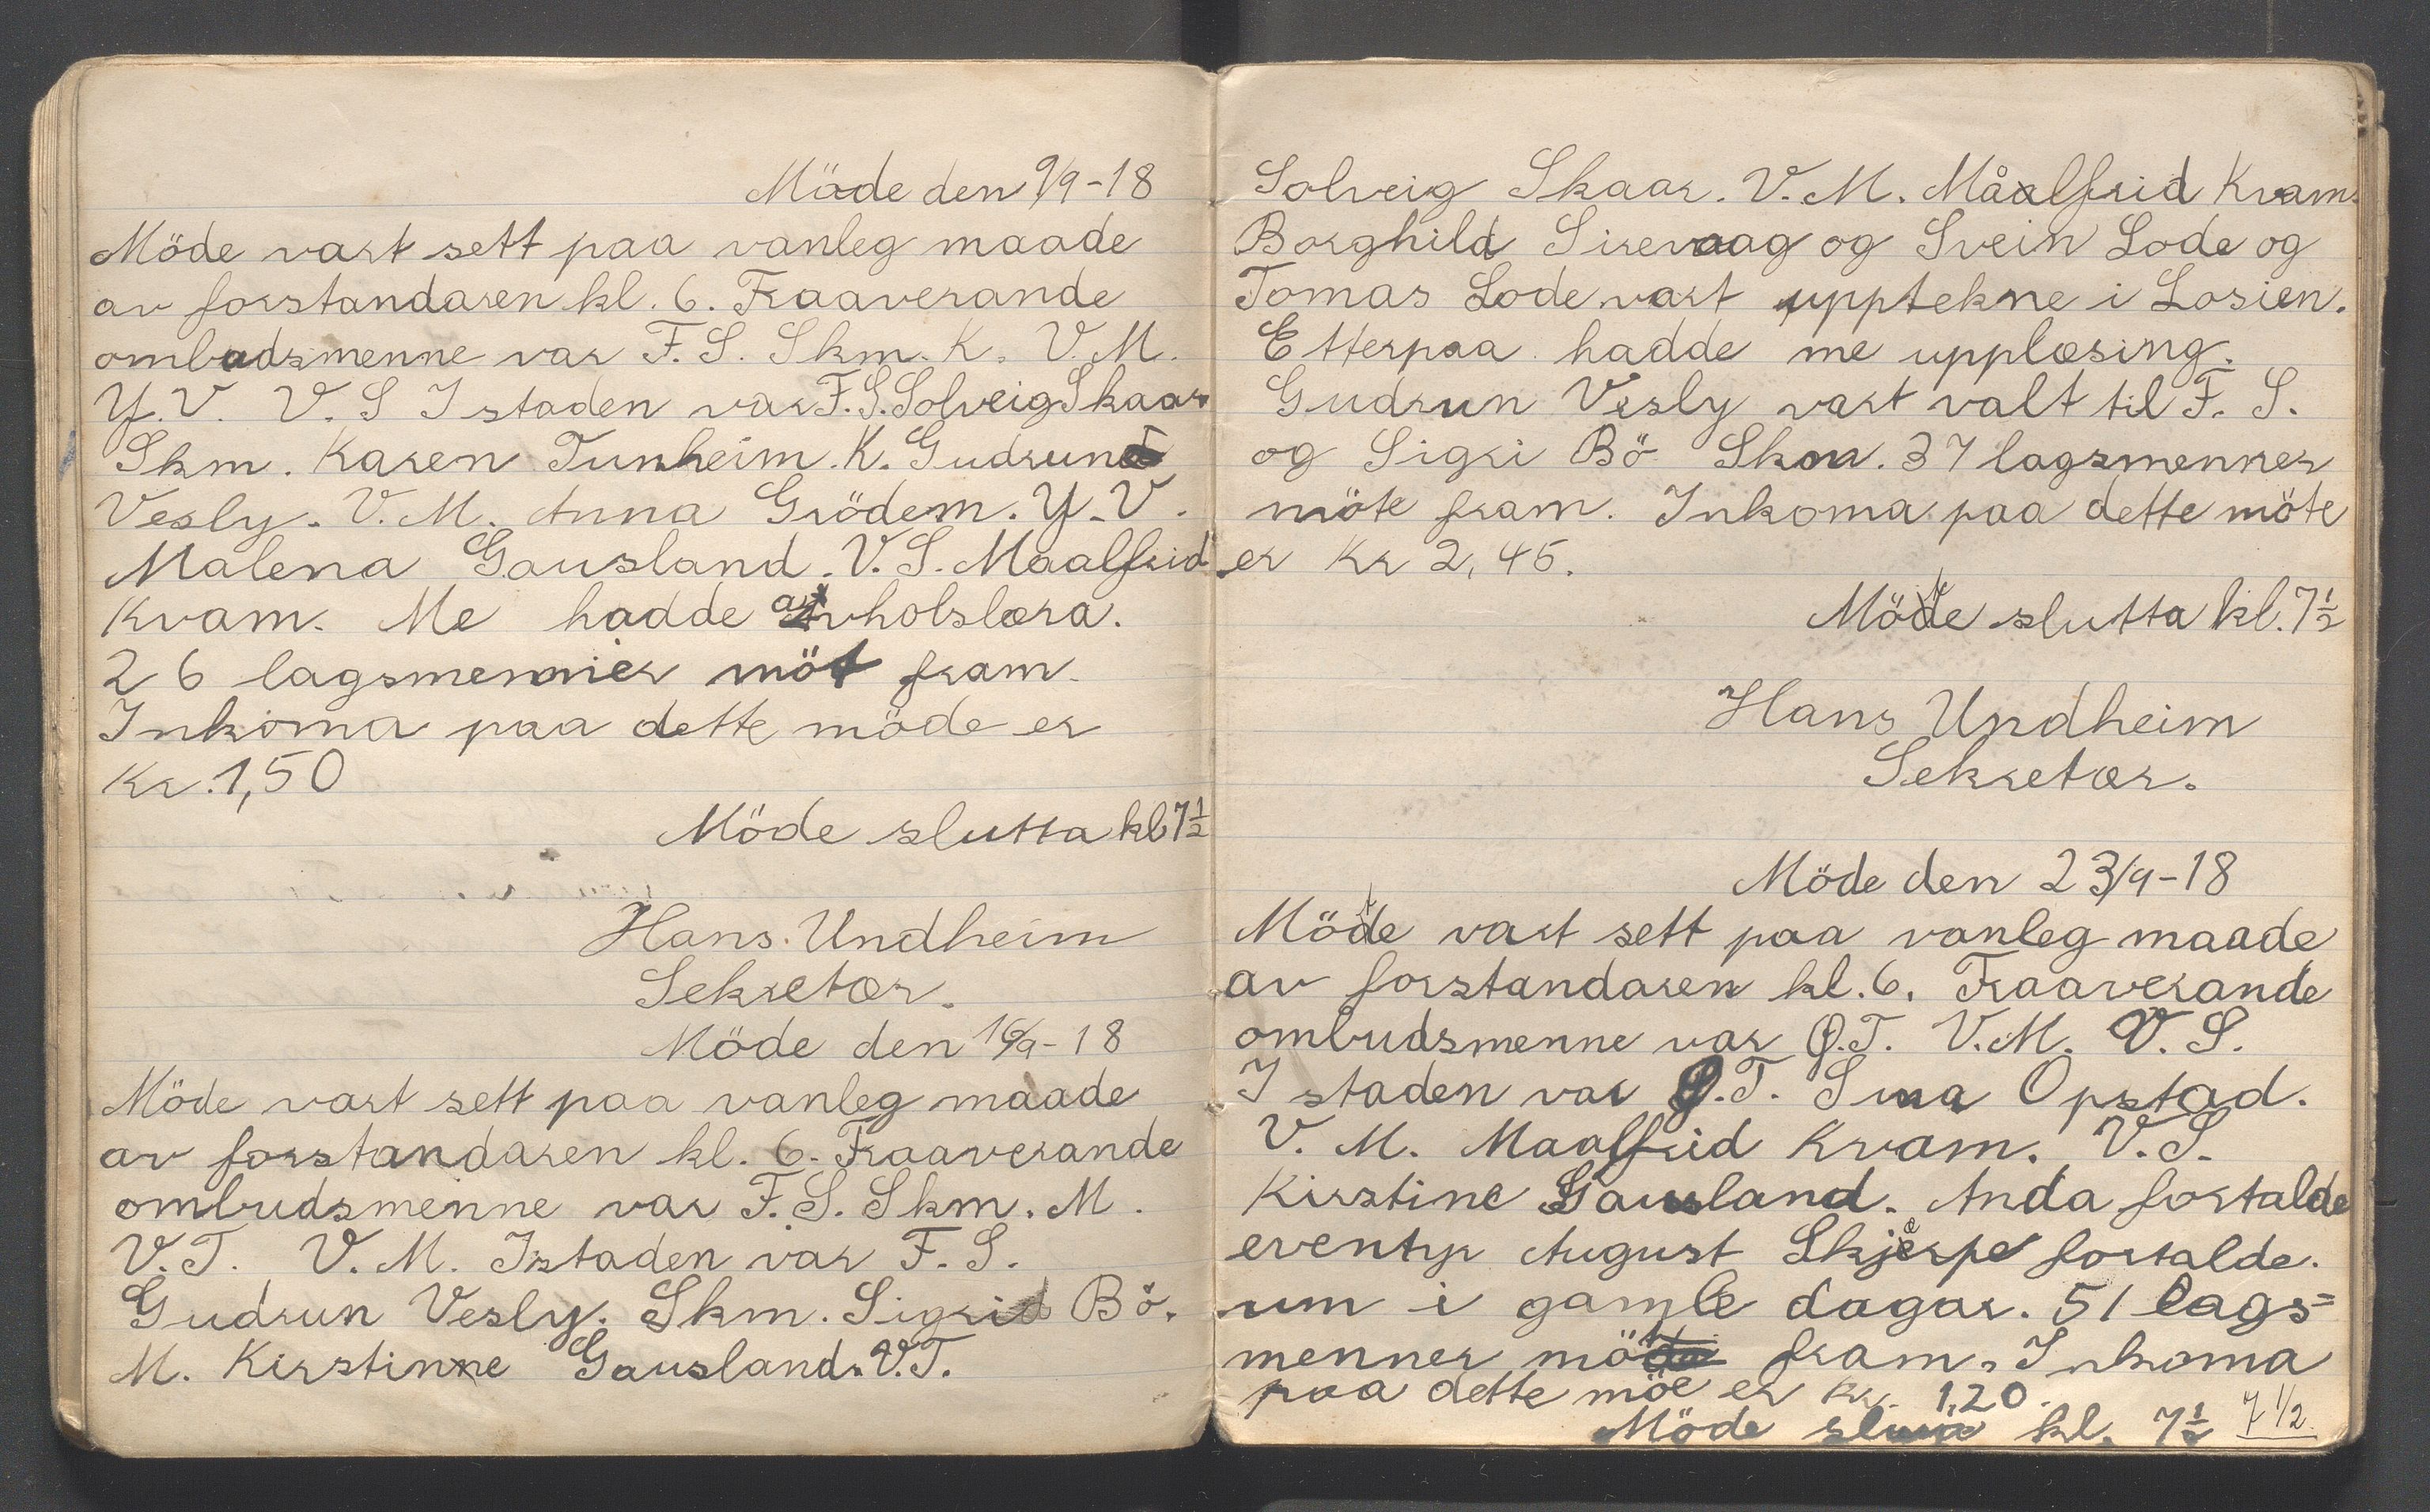 Möde den 9/9-18
Möde vart sett paa vanleg maade
av forstandaren kl. 6. Fraaverande
ombudsmenne var F. S. Skm. K. V. M.
Y. V. V. S I staden var F. S. Solveig Skaar
Skm. Karen Tunheim. K. Gudrun
Vesly. V. M. Anna Grödem. Y. V.
Malena Gausland. V. S. Maalfrid
Kvam. Me hadde avholslæra.
26 lagsmenner möt fram.
Inkoma paa dette möde er
Kr. 1,50
Möde slutta kl 7½
Hans. Undheim
Sekretær.
Möde den 16/9-18
Möde vart sett paa vanleg maade
av forstandaren kl. 6. Fraaverande
ombudsmenne var F. S. Skm. M.
V. T. V. M. Istaden var F. S.
Gudrun Vesly. Skm. Sigrid Bö.
M. Kirstinne Gausland. V. T.
Solveig Skaar. V. M. Måalfrid Kvam.
Borghild Sirevaag og Svein Lode og
Tomas Lode vart upptekne i Losien.
Etterpaa hadde me upplæsing.
Gudrun Vesly vart valt til F. S.
og Sigri Bö Skm. 37 lagsmenner
möte fram. Inkoma paa dette möte
er Kr 2,45.
Möte slutta kl. 7½
Hans Undheim
Sekretær.
Möde den 23/9-18
Möte vart sett paa vanleg maade
av forstandaren kl. 6. Fraaverande
ombudsmenne var Ø. T. V. M. V. S.
I staden var Ø. T. Sina Opstad.
V. M. Maalfrid Kvam. V. S.
Kirstine Gausland. Anda fortalde
eventyr August Skjerpe fortalde.
um i gamle dagar. 51 lags=
menner mö fram. Inkoma
paa dette möe er kr. 1,20.
Möde slutta kl. 7½ 7 1/2.